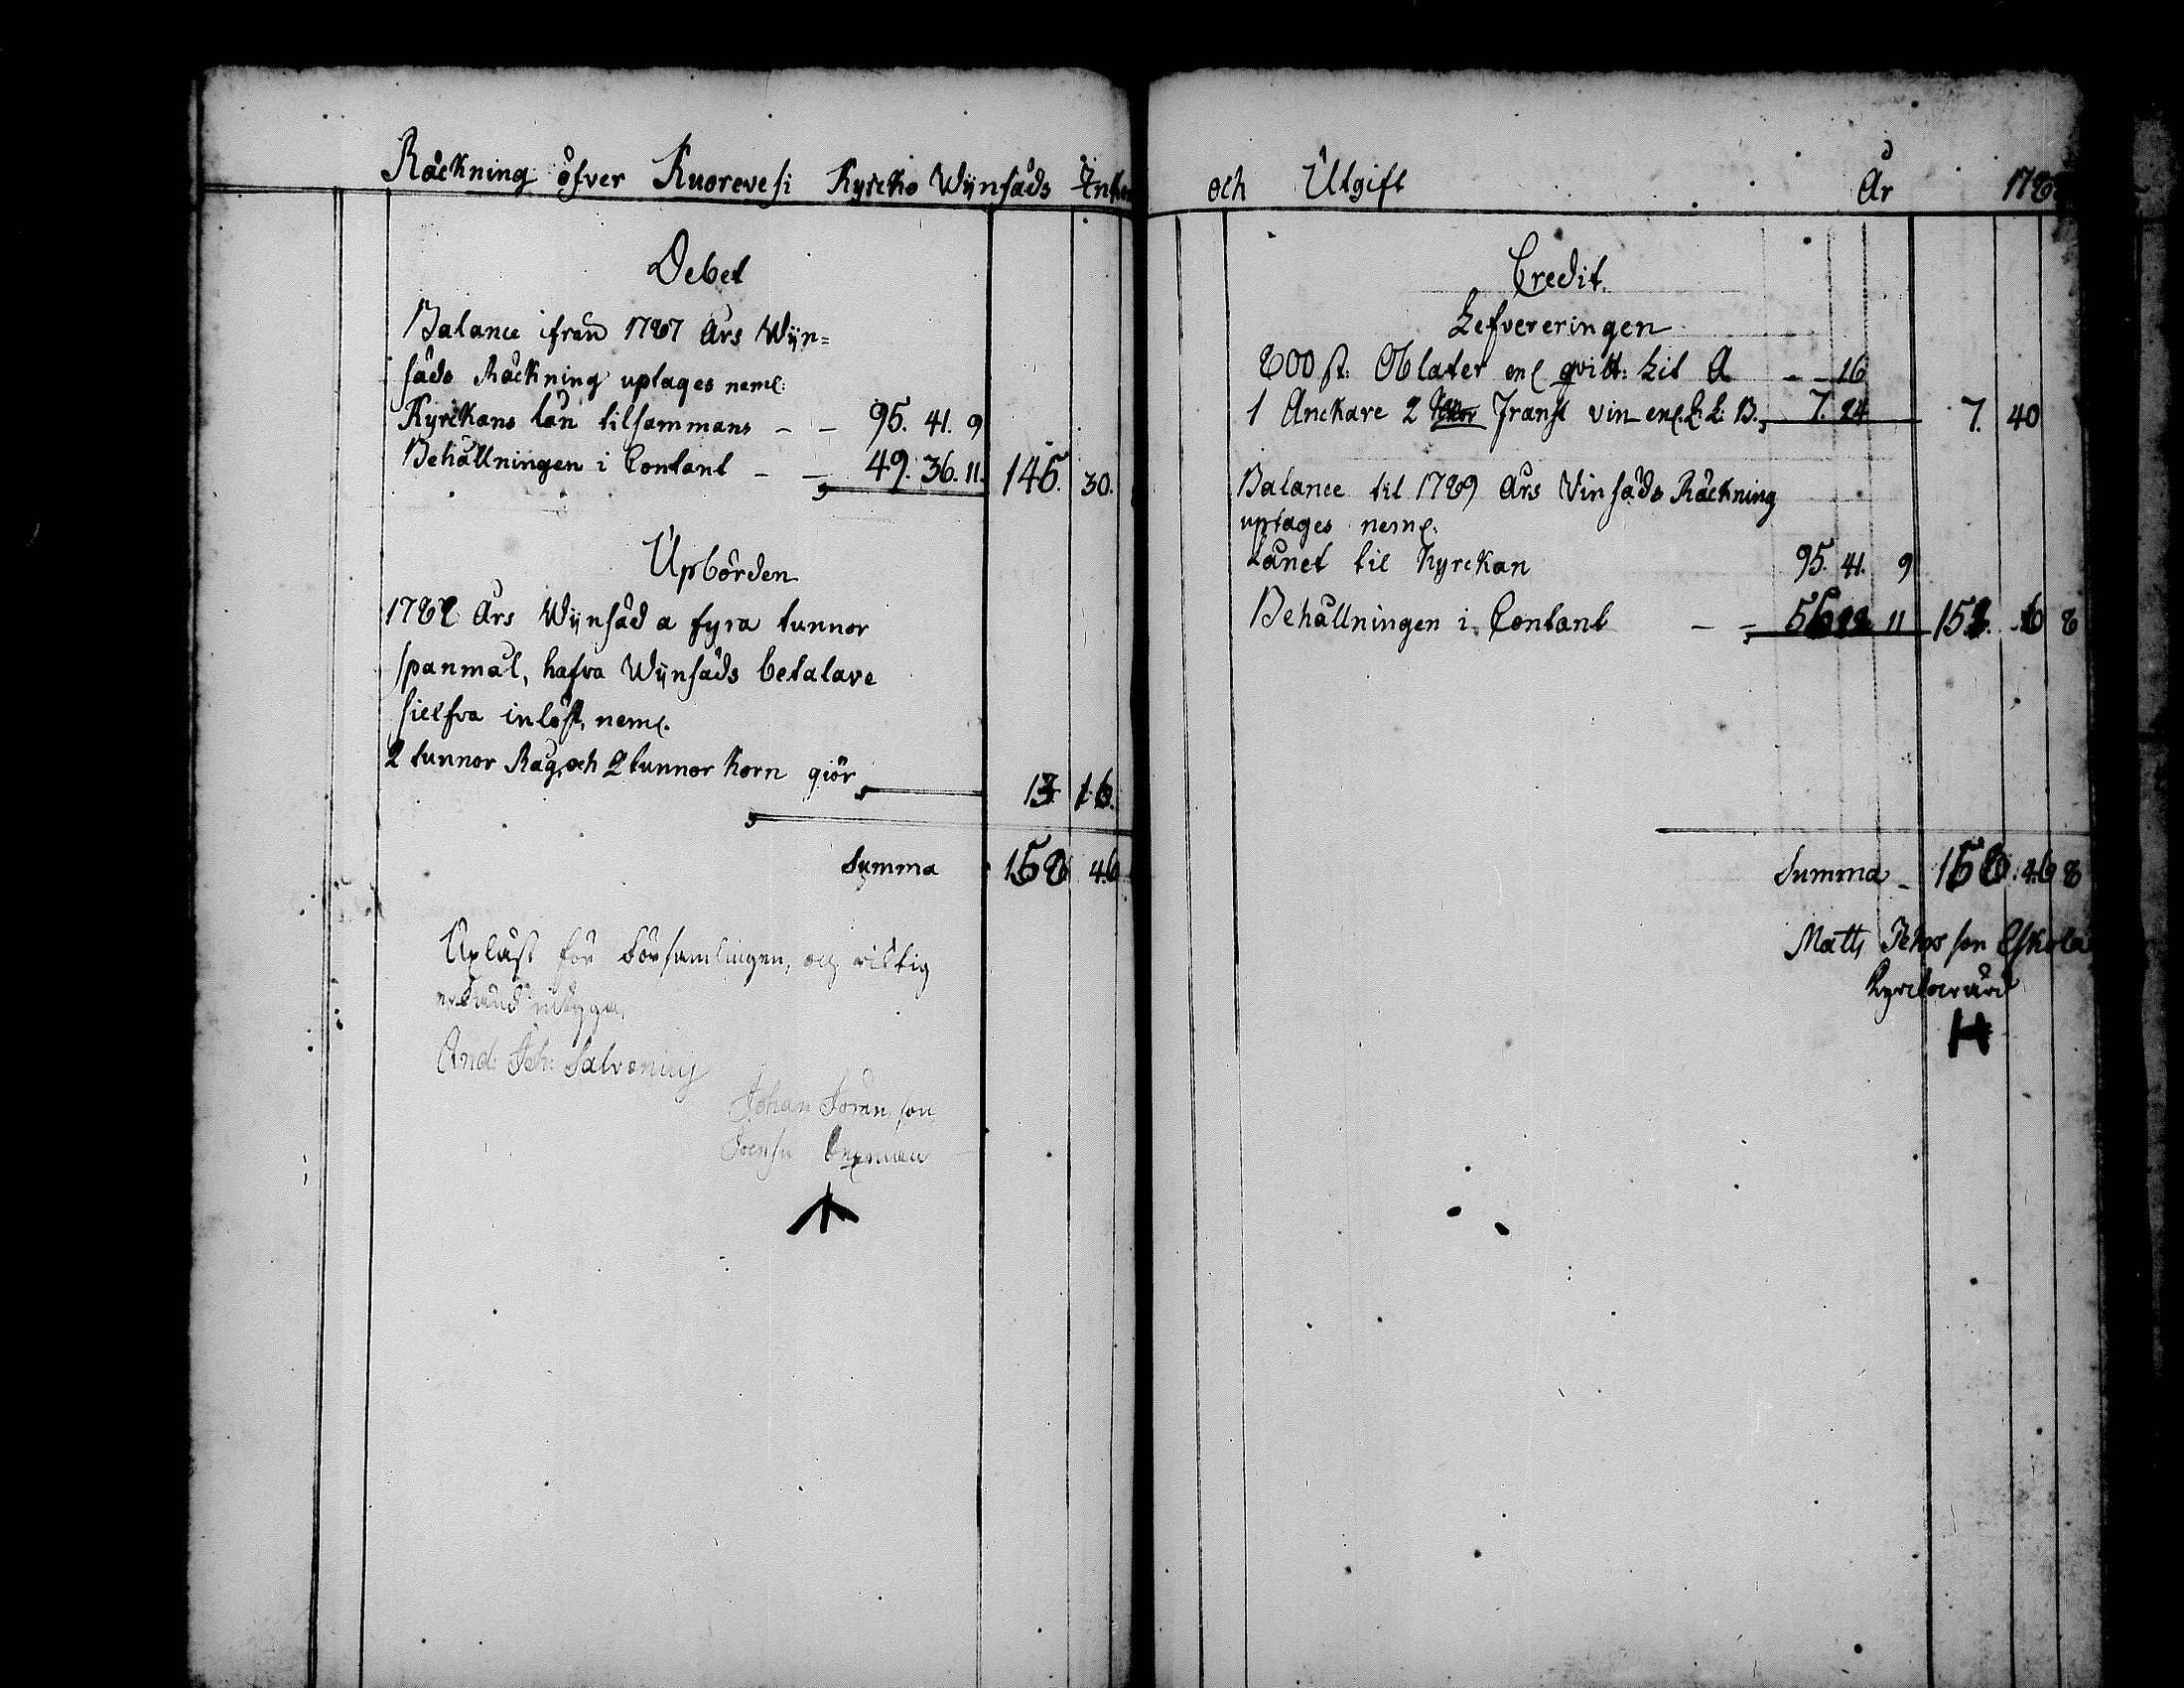 Räckning öfver Kuorevesi Kyrcko Wijnsäds
Debet
Balance ifrån 1787 Års Wijn=
säds Räckning uptages neml:
Kyrckans lån tilsammans - - 95. 41. 9
Behållningen i Contant - - 49. 36. 11. 145. 30.
Upbörden
1788 Års Wijnsäd a fyra tunnor
spanmål, hafva Wijnsäds betalare
sielfva inlöst, neml.
2 tunnor Råg, och 2 tunnor Korn giör 13 16.
Summa 158 46
Upläst för Församlingen, och riktig
erkänd intyga,
And: Joh: Salvenius
Johan Jöran son
Sexman
och Utgift År
Credit
Lefvereringen
800 st: Oblater enl qvitt: Lit A - - 16
1 Anckare 2 Franst vin enl. L: B. 7. 24 7. 40
Balance til 1789 Års Vinsäds Räckning
uptages neml.
Lånet til Kyrckan 95. 41. 9
Behållningen i Contant - - 11 151. 6 8
Summa - 158. 46 8
Matts son Eskola
Kyrckovärd
H